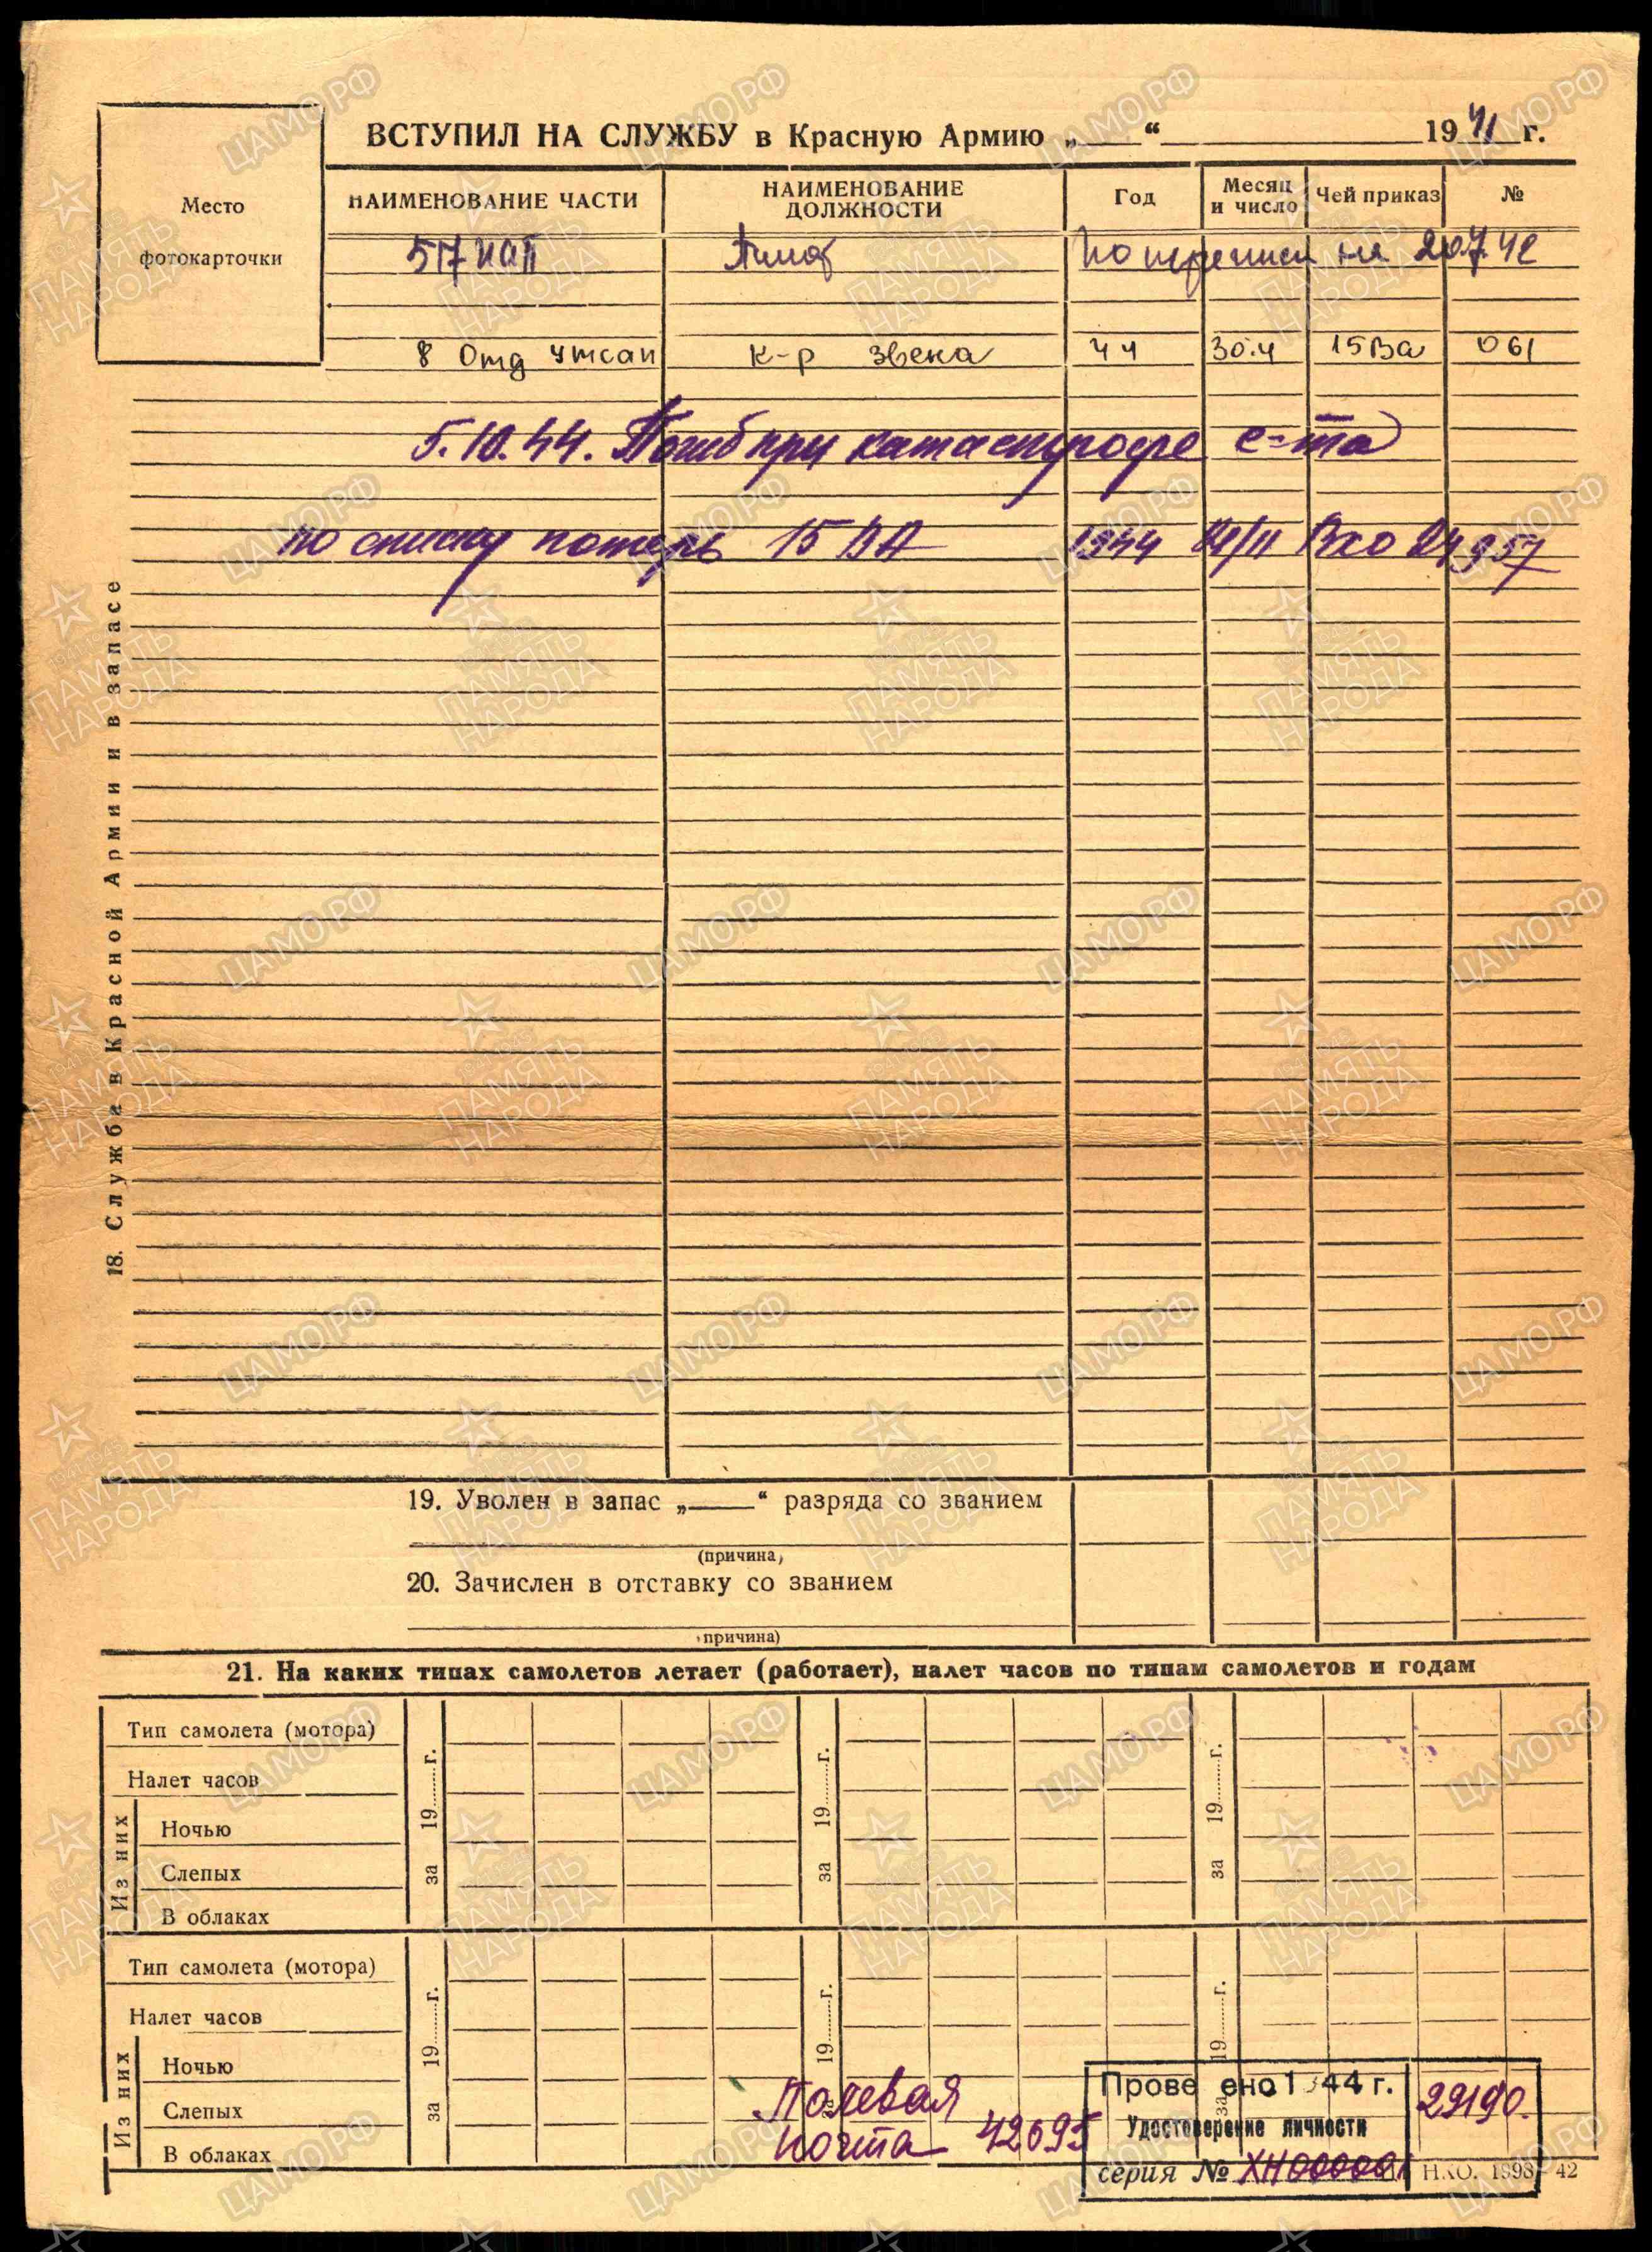 ВСТУПИЛ НА СЛУЖБУ в Красную Армию „ “ 1941 г.
Место
фотокарточки
НАИМЕНОВАНИЕ ЧАСТИ
НАИМЕНОВАНИЕ ДОЛЖНОСТИ
Год
Месяц и число
Чей приказ
№
517 иап Пилот По переписи на 20.7.42
8 Отд утсап к-р звена 44 30.4 15 Ва 061
5.10.44. Погиб при катастрофе с-та
по списку потерь 15 ВА 1944 Вхо 24957
18. Служба в Красной Армии и в запасе
19. Уволен в запас „ “ разряда со званием
(причина)
20. Зачислен в отставку со званием
причина)
21. На каких типах самолетов летает (работает), налет часов по типам самолетов и годам
Тип самолета (мотора)
Налет часов
Из них
Ночью
Слепых
В облаках
за 19 г.
за 19 г.
за 19 г.
Тип самолета (мотора)
Налет часов
Из них
Ночью
Слепых
В облаках
за 19 г.
за 19 г.
за 19 г.
Полевая
почта 42695
Прове ено 1 44 г.
Удостоверение личности
серия № ХН 00000
29190.
НКО. 1998—42
ЦАМО.РФ
1941-1945
ПАМЯТЬ
НАРОДА